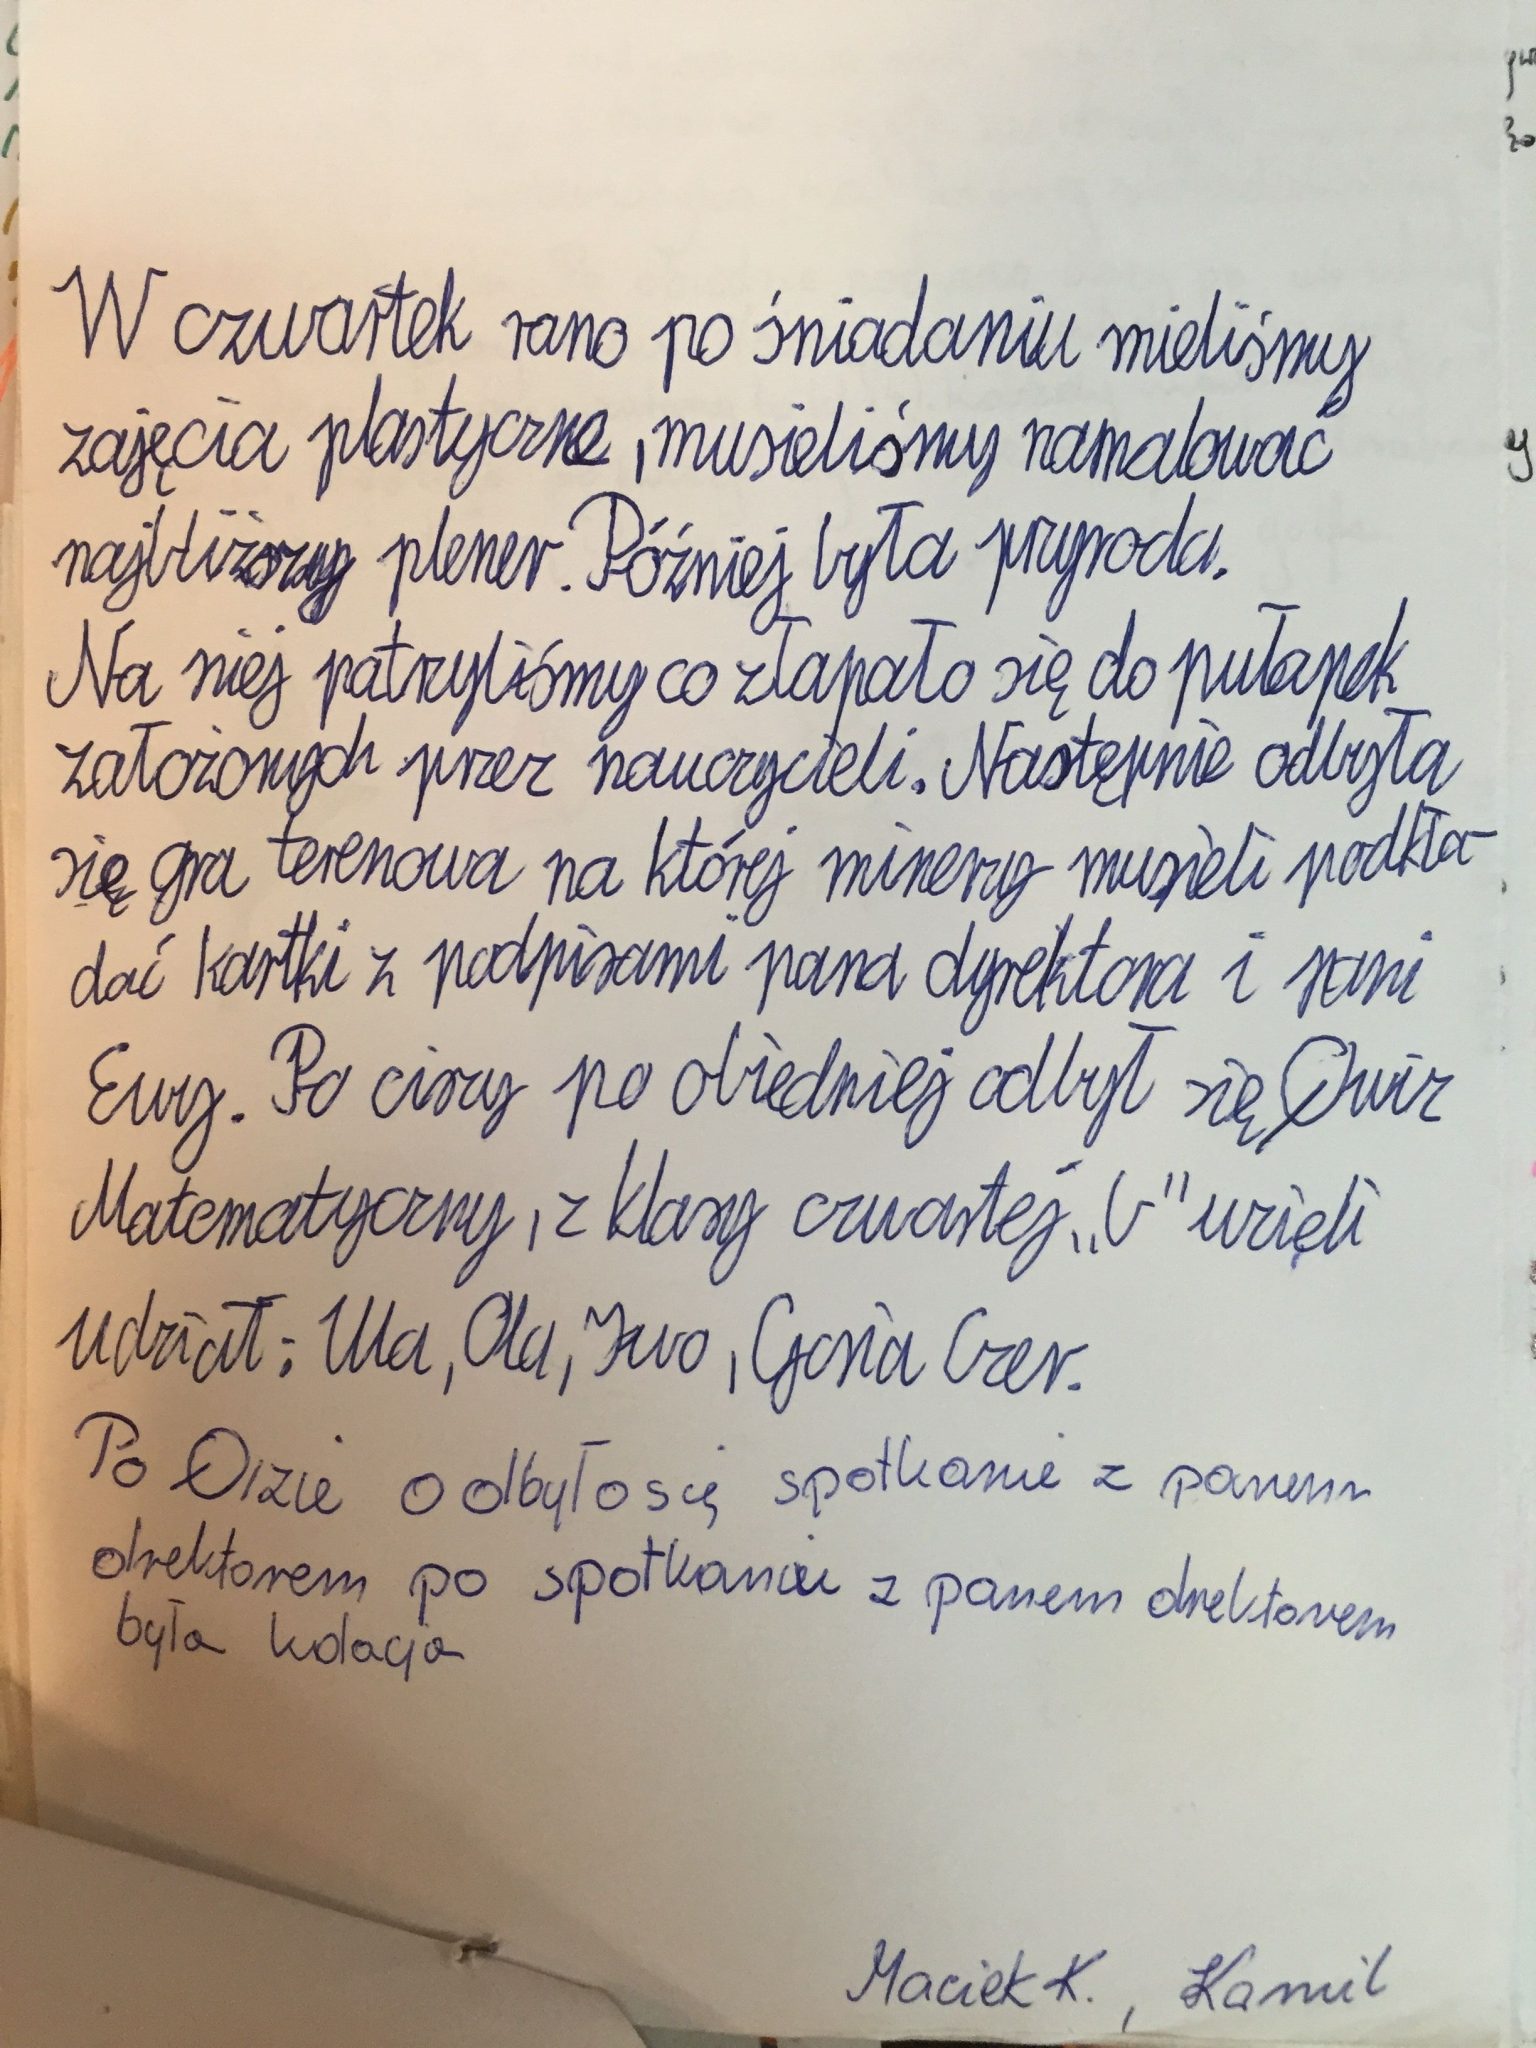 W czwartek rano po śniadaniu mieliśmy
zajęcia plastyczne, musieliśmy namalować
najbliższy plener. Później była przyroda.
Na niej patrzyliśmy co złapało się do pułapek
założonych przez nauczycieli. Następnie odbyła
się gra terenowa na której minerzy musieli podkła-
dać kartki z podpisami pana dyrektora i pani
Ewy. Po ciszy po obiedniej odbył się Qwiz
Matematyczny, z klasy czwartej „C" wzięli
udział: Ula, Ola, Iwo, Gosia Czer.
Po Qizie odbyło się spotkanie z panem
drektorem po spotkaniu z panem drektorem
była kolacja
Maciek K., Kamil